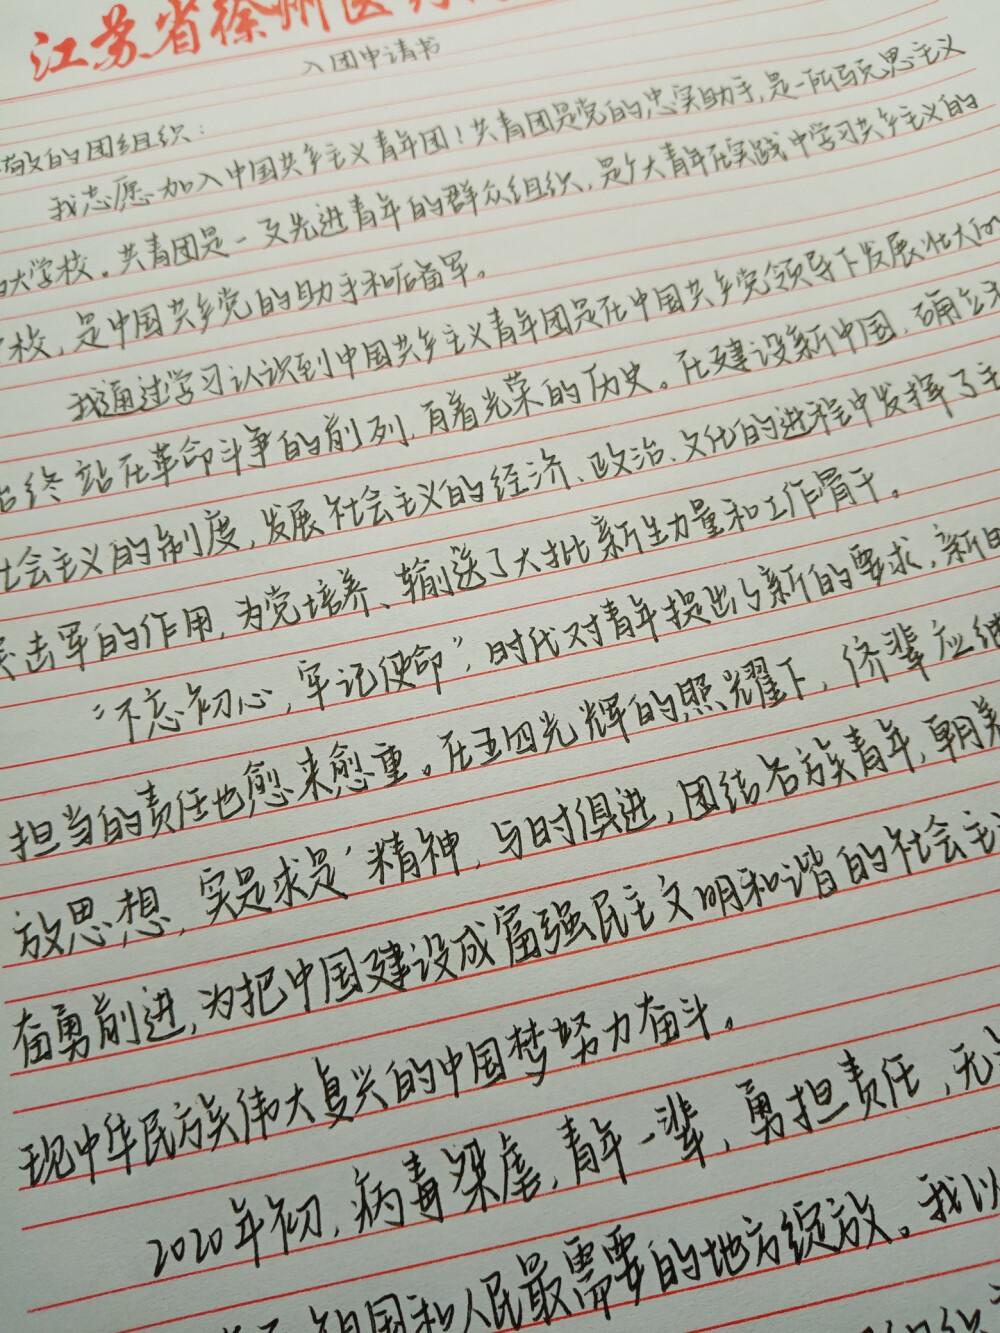 江苏省徐州医药
入团申请书
敬的团组织：
我志愿加入中国共产主义青年团！共青团是党的忠实助手，是一所马克思主义
大学校。共青团是一支先进青年的群众组织，是广大青年在实践中学习共产主义的
校，是中国共产党的助手和后备军。
我通过学习认识到中国共产主义青年团是在中国共产党领导下发展壮大的
始终站在革命斗争的前列，有着光荣的历史。在建设新中国，确立
社会主义的制度，发展社会主义的经济、政治、文化的进程中发挥了
突击军的作用，为党培养、输送了大批新生力量和工作骨干。
“不忘初心，牢记使命”，时代对青年提出了新的要求，新的
担当的责任也愈来愈重。在五四光辉的照耀下，侪辈应继
放思想，实是求是’精神，与时俱进，团结各族青年，朝
奋勇前进，为把中国建设成富强民主文明和谐的社会主
现中华民族伟大复兴的中国梦努力奋斗。
2020年初，病毒肆虐，青年一辈，勇担责任，无
祖国和人民最需要的地方绽放。我以